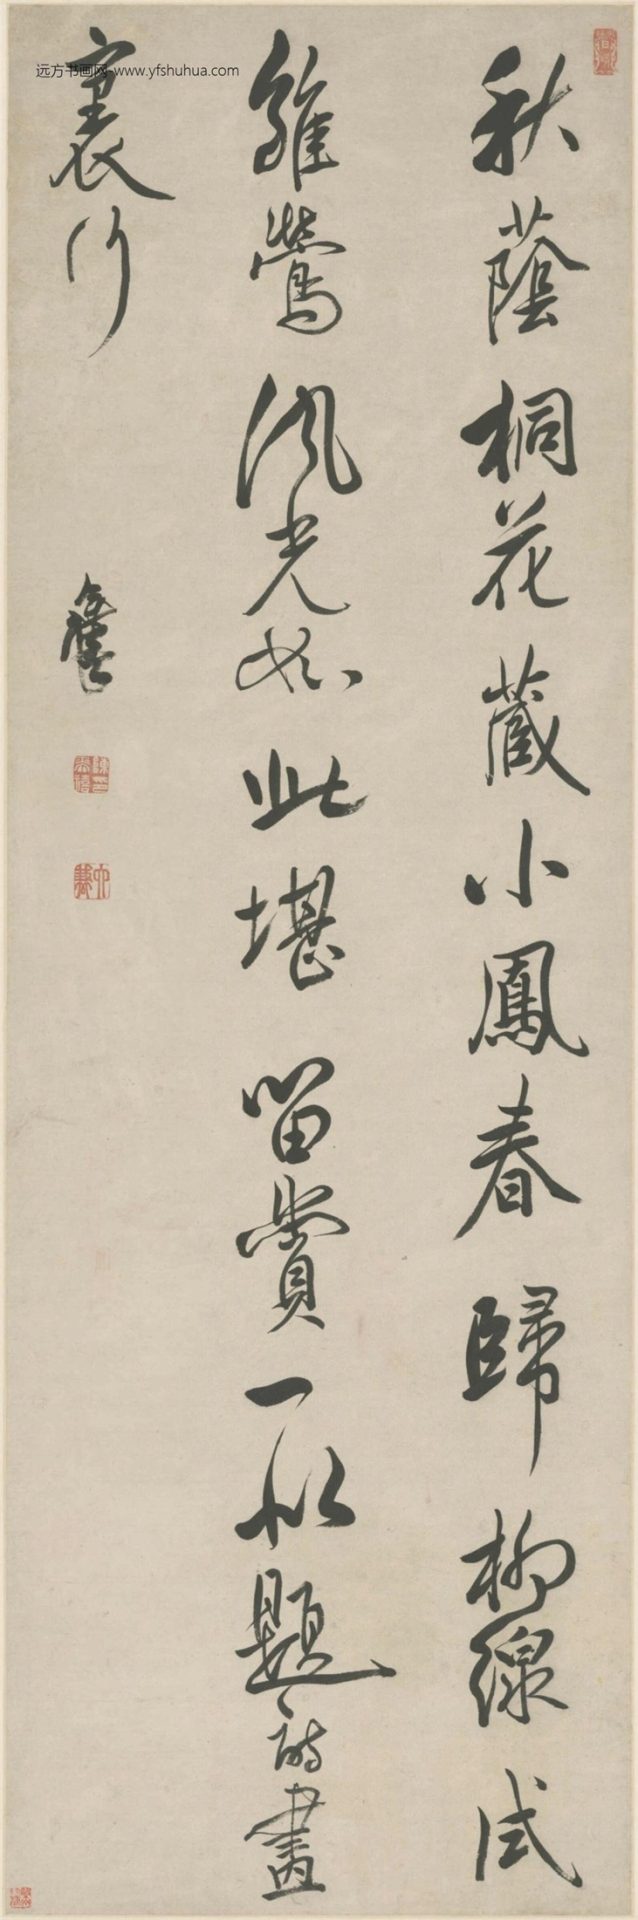 远方书画网-www.yfshuhua.com
秋蔭桐花藏小鳳春歸柳線試
雛鶯風光如此堪留賞一似題詩畫
裏行
陳印奕禧
六謙